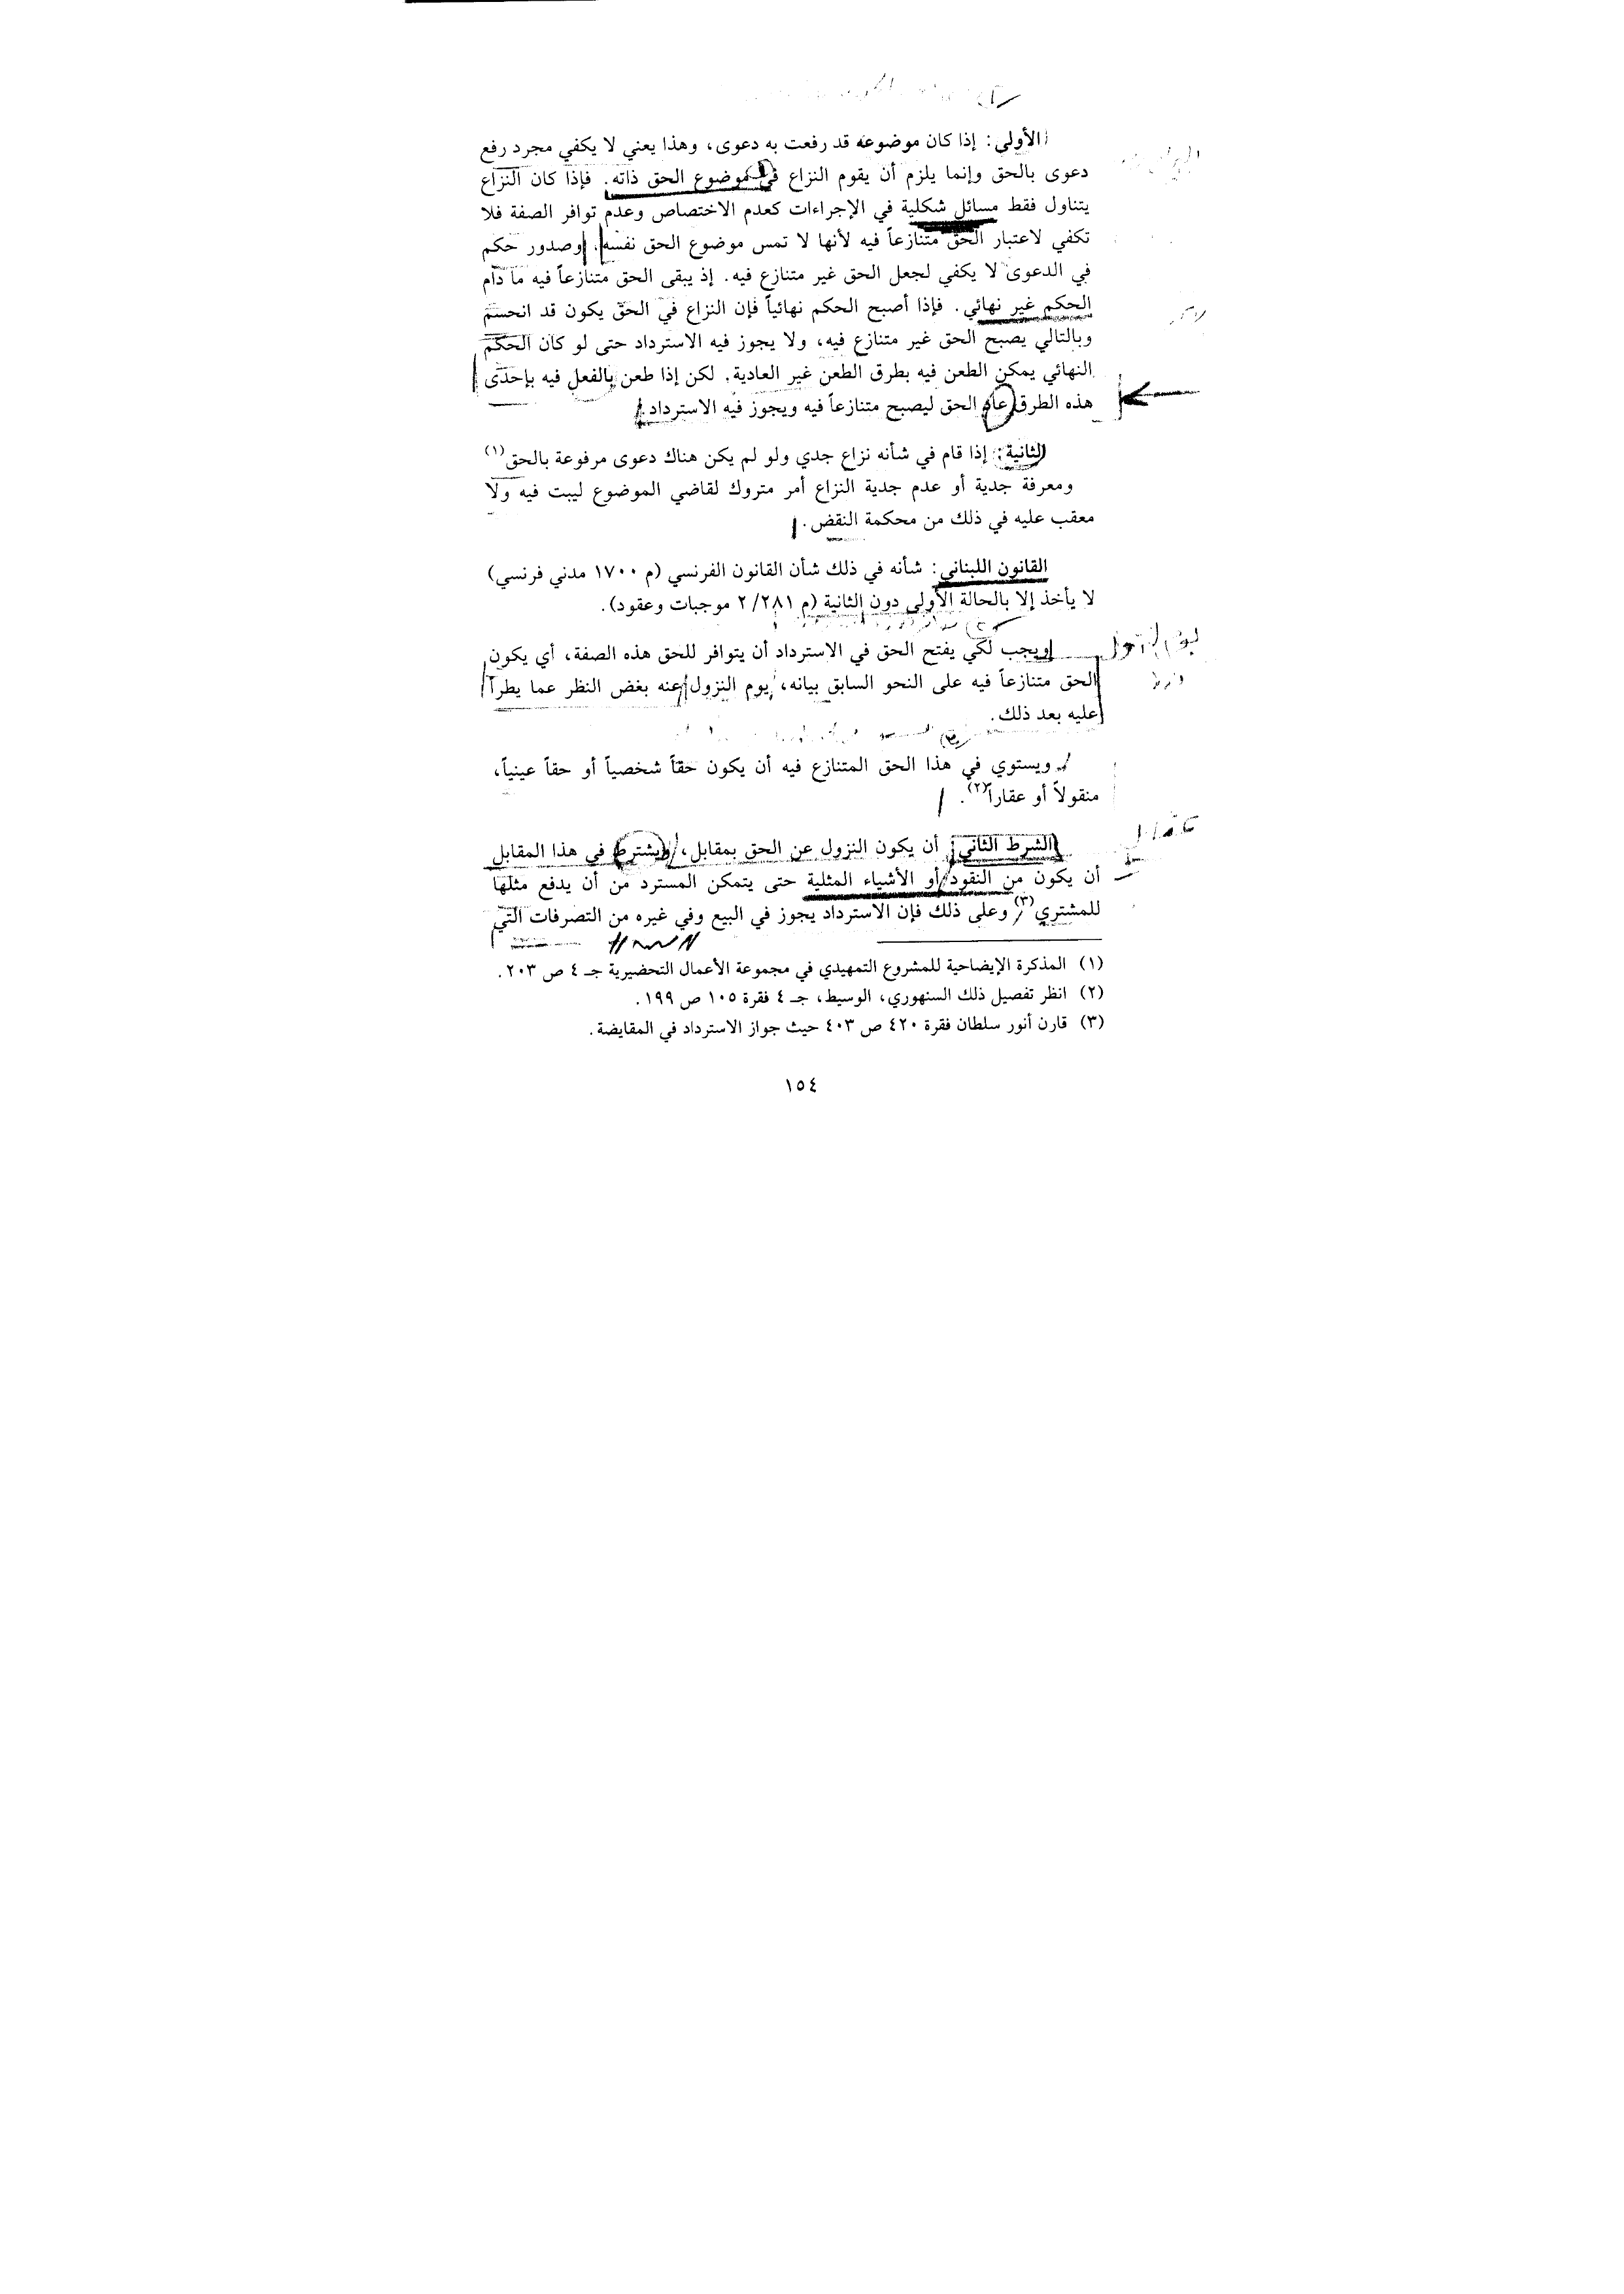 الأولى: إذا كان موضوعه قد رفعت به دعوى، وهذا يعني لا يكفي مجرد رفع
دعوى بالحق وإنما يلزم أن يقوم النزاع في موضوع الحق ذاته. فإذا كان النزاع
يتناول فقط مسائل شكلية في الإجراءات كعدم الاختصاص وعدم توافر الصفة فلا
تكفي لاعتبار الحق متنازعاً فيه لأنها لا تمس موضوع الحق نفسه. وصدور حكم
في الدعوى لا يكفي لجعل الحق غير متنازع فيه. إذ يبقى الحق متنازعاً فيه ما دام
الحكم غير نهائي. فإذا أصبح الحكم نهائياً فإن النزاع في الحق يكون قد انحسم
وبالتالي يصبح الحق غير متنازع فيه، ولا يجوز فيه الاسترداد حتى لو كان الحكم
النهائي يمكن الطعن فيه بطرق الطعن غير العادية. لكن إذا طعن بالفعل فيه بإحدى
هذه الطرق عاد الحق ليصبح متنازعاً فيه ويجوز فيه الاسترداد.
الثانية: إذا قام في شأنه نزاع جدي ولو لم يكن هناك دعوى مرفوعة بالحق(١)
ومعرفة جدية أو عدم جدية النزاع أمر متروك لقاضي الموضوع ليبت فيه ولا
معقب عليه في ذلك من محكمة النقض.
القانون اللبناني: شأنه في ذلك شأن القانون الفرنسي (م ١٧٠٠ مدني فرنسي)
لا يأخذ إلا بالحالة الأولى دون الثانية (م ٢/٢٨١ موجبات وعقود).
ويجب لكي يفتح الحق في الاسترداد أن يتوافر للحق هذه الصفة، أي يكون
الحق متنازعاً فيه على النحو السابق بيانه، يوم النزول عنه بغض النظر عما يطرأ
عليه بعد ذلك.
ويستوي في هذا الحق المتنازع فيه أن يكون حقاً شخصياً أو حقاً عينياً،
منقولاً أو عقاراً(٢).
الشرط الثاني: أن يكون النزول عن الحق بمقابل، ويشترط في هذا المقابل
أن يكون من النقود أو الأشياء المثلية حتى يتمكن المسترد من أن يدفع مثلها
للمشتري(٣) وعلى ذلك فإن الاسترداد يجوز في البيع وفي غيره من التصرفات التي
(١) المذكرة الإيضاحية للمشروع التمهيدي في مجموعة الأعمال التحضيرية جـ ٤ ص ٢٠٣.
(٢) انظر تفصيل ذلك السنهوري، الوسيط، جـ ٤ فقرة ١٠٥ ص ١٩٩.
(٣) قارن أنور سلطان فقرة ٤٢٠ ص ٤٠٣ حيث جواز الاسترداد في المقايضة.
١٥٤